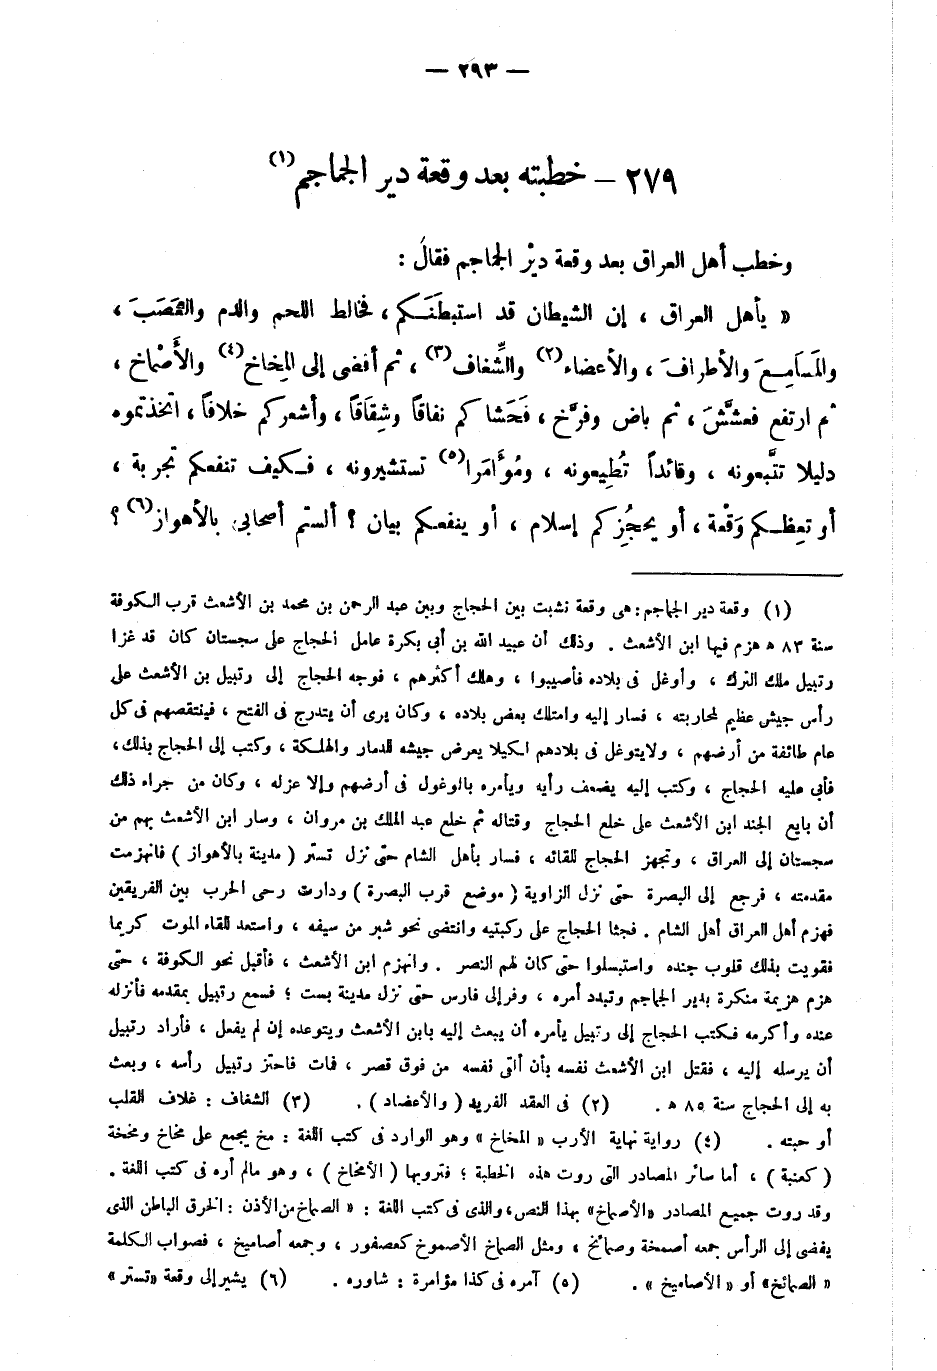 — ٢٩٣ —
٢٧٩ — خطبته بعد وقعة دير الجماجم (١)
وخطب أهل العراق بعد وقعة ديْر الجماجم فقالَ :
« يأهل العراق ، إن الشيطان قد استبطَنَكم ، فخالط اللحم والدم والعَصَبَ ،
والمَسامِعَ والأطرافَ ، والأعضاء (٢) والشِّغاف (٣) ، ثم أفضى إلى المِخاخ (٤) والأَصْماخ ،
ثم ارتفع فعشَّشَ ، ثم باض وفرَّخ ، فَحَشاكم نفاقاً وشِقَاقاً ، وأشعركم خلافاً ، اتخذتموه
دليلا تتَّبعونه ، وقائداً تُطِيعونه ، ومُؤَامَرا (٥) تستشيرونه ، فكيف تنفعكم تجربة ،
أو تعِظكم وَقْعة ، أو يحجُزكم إسلام ، أو ينفعكم بيان ؟ ألستم أصحابى بالأهواز (٦) ؟
(١) وقعة دير الجماجم : هى وقعة نشبت بين الحجاج وبين عبد الرحمن بن محمد بن الأشعث قرب الكوفة
سنة ٨٣ هـ هزم فيها ابن الأشعث . وذلك أن عبيد الله بن أبى بكرة عامل الحجاج على سجستان كان قد غزا
رتبيل ملك الترك ، وأوغل فى بلاده فأصيبوا ، وهلك أكثرهم ، فوجه الحجاج إلى رتبيل بن الأشعث على
رأس جيش عظيم لمحاربته ، فسار إليه وامتلك بعض بلاده ، وكان يرى أن يتدرج فى الفتح ، فينتقصهم فى كل
عام طائفة من أرضهم ، ولا يتوغل فى بلادهم لكيلا يعرض جيشه للدمار والهلكة ، وكتب إلى الحجاج بذلك ،
فأبى عليه الحجاج ، وكتب إليه يضعف رأيه ويأمره بالوغول فى أرضهم وإلا عزله ، وكان من جراء ذلك
أن بايع الجند ابن الأشعث على خلع الحجاج وقتاله ثم خلع عبد الملك بن مروان ، وسار ابن الأشعث بهم من
سجستان إلى العراق ، وتجهز الحجاج للقائه ، فسار بأهل الشام حتى نزل تستر ( مدينة بالأهواز ) فانهزمت
مقدمته ، فرجع إلى البصرة حتى نزل الزاوية ( موضع قرب البصرة ) ودارت رحى الحرب بين الفريقين
فهزم أهل العراق أهل الشام . فجثا الحجاج على ركبتيه وانتضى نحو شبر من سيفه ، واستعد للقاء الموت كريما
فقويت بذلك قلوب جنده واستبسلوا حتى كان لهم النصر . وانهزم ابن الأشعث ، فأقبل نحو الكوفة ، حتى
هزم هزيمة منكرة بدير الجماجم وتبدد أمره ، وفر إلى فارس حتى نزل مدينة بست ؛ فسمع رتبيل بمقدمه فأنزله
عنده وأكرمه فكتب الحجاج إلى رتبيل يأمره أن يبعث إليه بابن الأشعث ويتوعده إن لم يفعل ، فأراد رتبيل
أن يرسله إليه ، فقتل ابن الأشعث نفسه بأن ألقى نفسه من فوق قصر ، فمات فاحتز رتبيل رأسه ، وبعث
به إلى الحجاج سنة ٨٥ هـ . (٢) فى العقد الفريد ( والأعضاد ) . (٣) الشغاف : غلاف القلب
أو حبته . (٤) رواية نهاية الأرب « المخاخ » وهو الوارد فى كتب اللغة : مخ يجمع على مخاخ ومخخة
( كعنبة ) ، أما سائر المصادر التى روت هذه الخطبة ؛ فترويها ( الأمخاخ ) ، وهو مالم أره فى كتب اللغة .
وقد روت جميع المصادر « الأصماخ » بهذا النص ، والذى فى كتب اللغة : « الصماخ من الأذن : الخرق الباطن الذى
يفضى إلى الرأس جمعه أصمخة وصمائخ ، ومثل الصماخ الأصموخ كعصفور ، وجمعه أصاميخ ، فصواب الكلمة
« الصمائخ » أو « الأصاميخ » . (٥) آمره فى كذا مؤامرة : شاوره . (٦) يشير إلى وقعة « تستر »